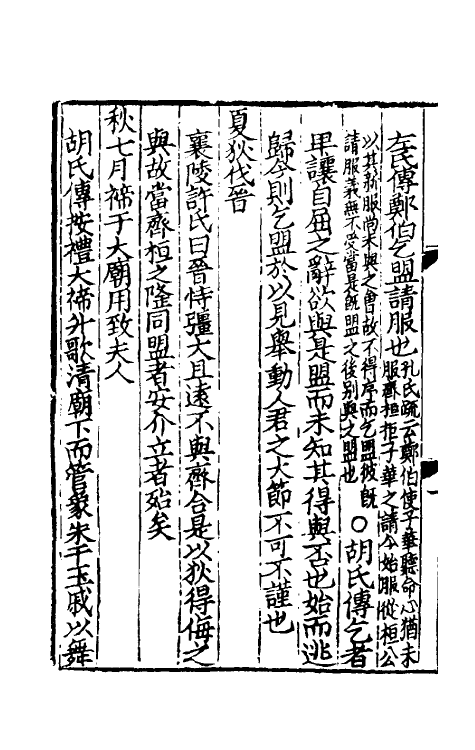 左氏傳鄭伯乞盟請服也孔氏疏云鄭伯使子華聽命心猶未
服齊桓拒子華之請今始服從桓公
以其新服尚未與之會故不得序而乞盟彼既
請服義無不受當是既盟之後別與之盟也
○胡氏傳乞者
卑讓自屈之辭欲與是盟而未知其得與否也始而逃
歸今則乞盟於以見舉動人君之大節不可不謹也
夏狄伐晉
襄陵許氏曰晉恃彊大且遠不與齊合是以狄得侮之
與故當齊桓之隆同盟者安介立者殆矣
秋七月禘于大廟用致夫人
胡氏傳按禮大禘升歌清廟下而管象朱干玉戚以舞